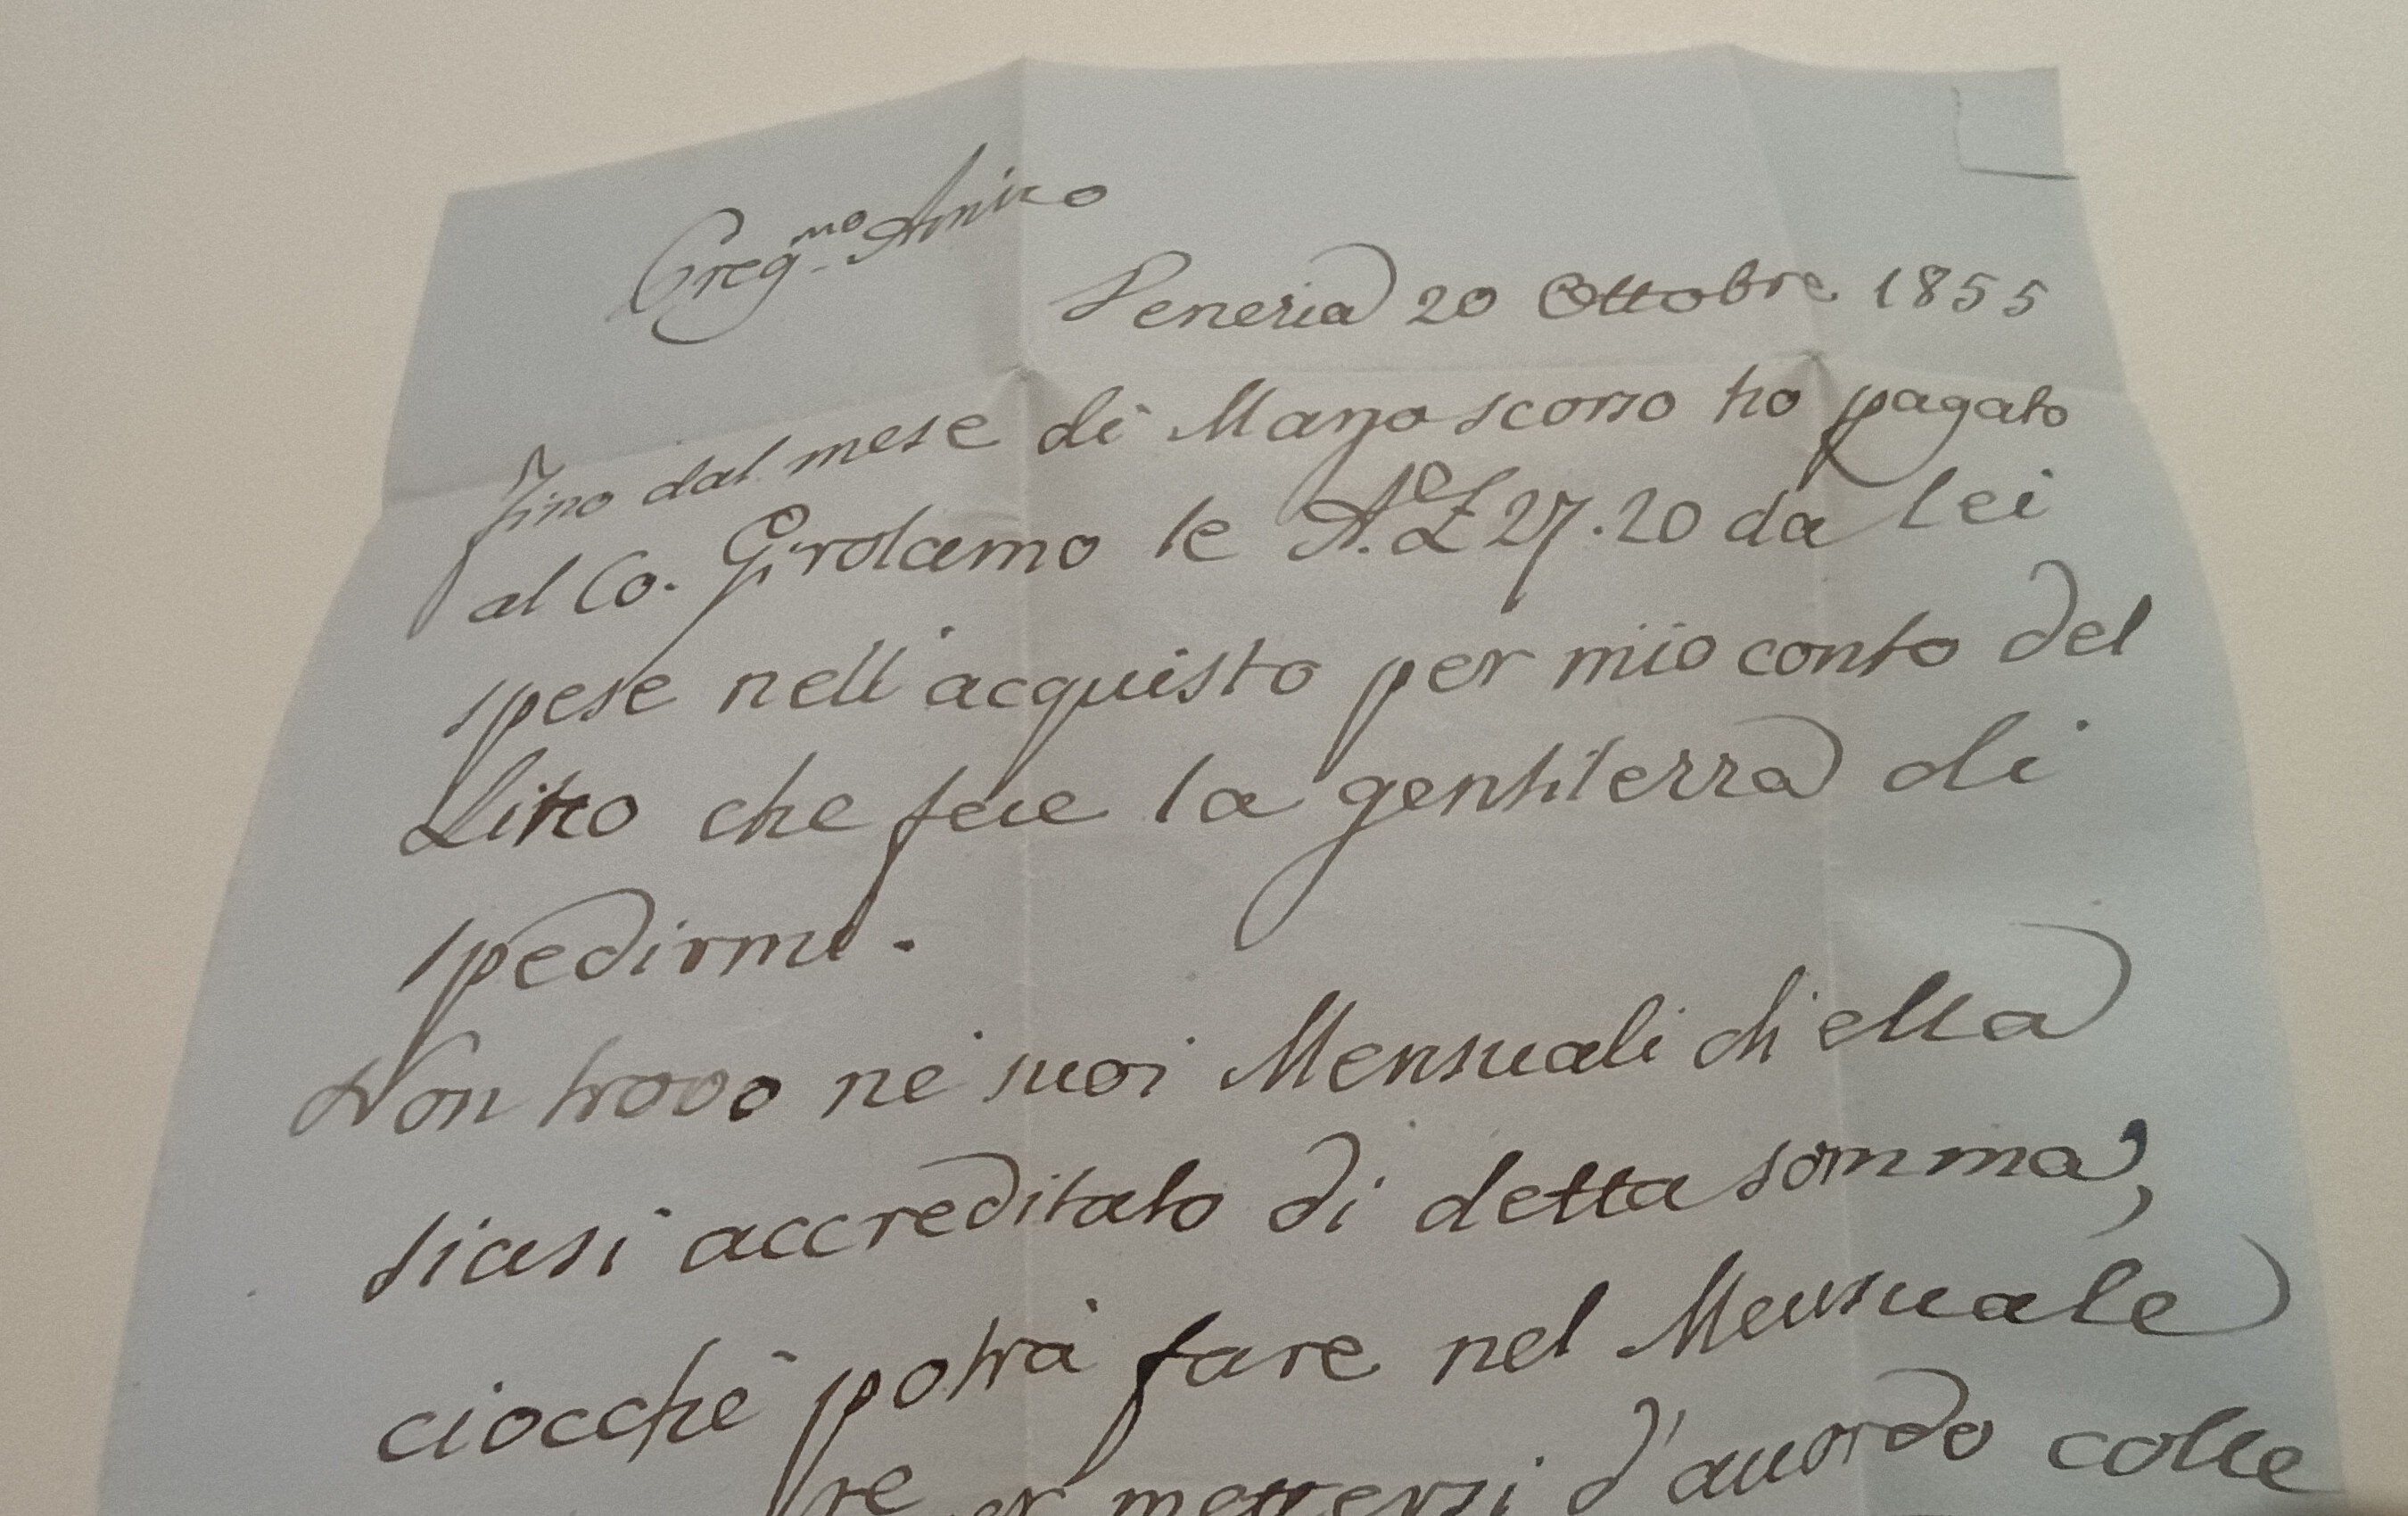 Preg.mo Amico
Venezia 20 Ottobre 1855
Fino dal mese di Marzo scorso ho pagato
al Co. Girolamo le A.£ 27.20 da lei
spese nell'acquisto per mio conto del
Lino che fece la gentilezza di
spedirmi.
Non trovo ne' suoi Mensuali ch'ella
siasi accreditato di detta somma,
ciocchè potrà fare nel Mensuale
mettersi d'accordo colle